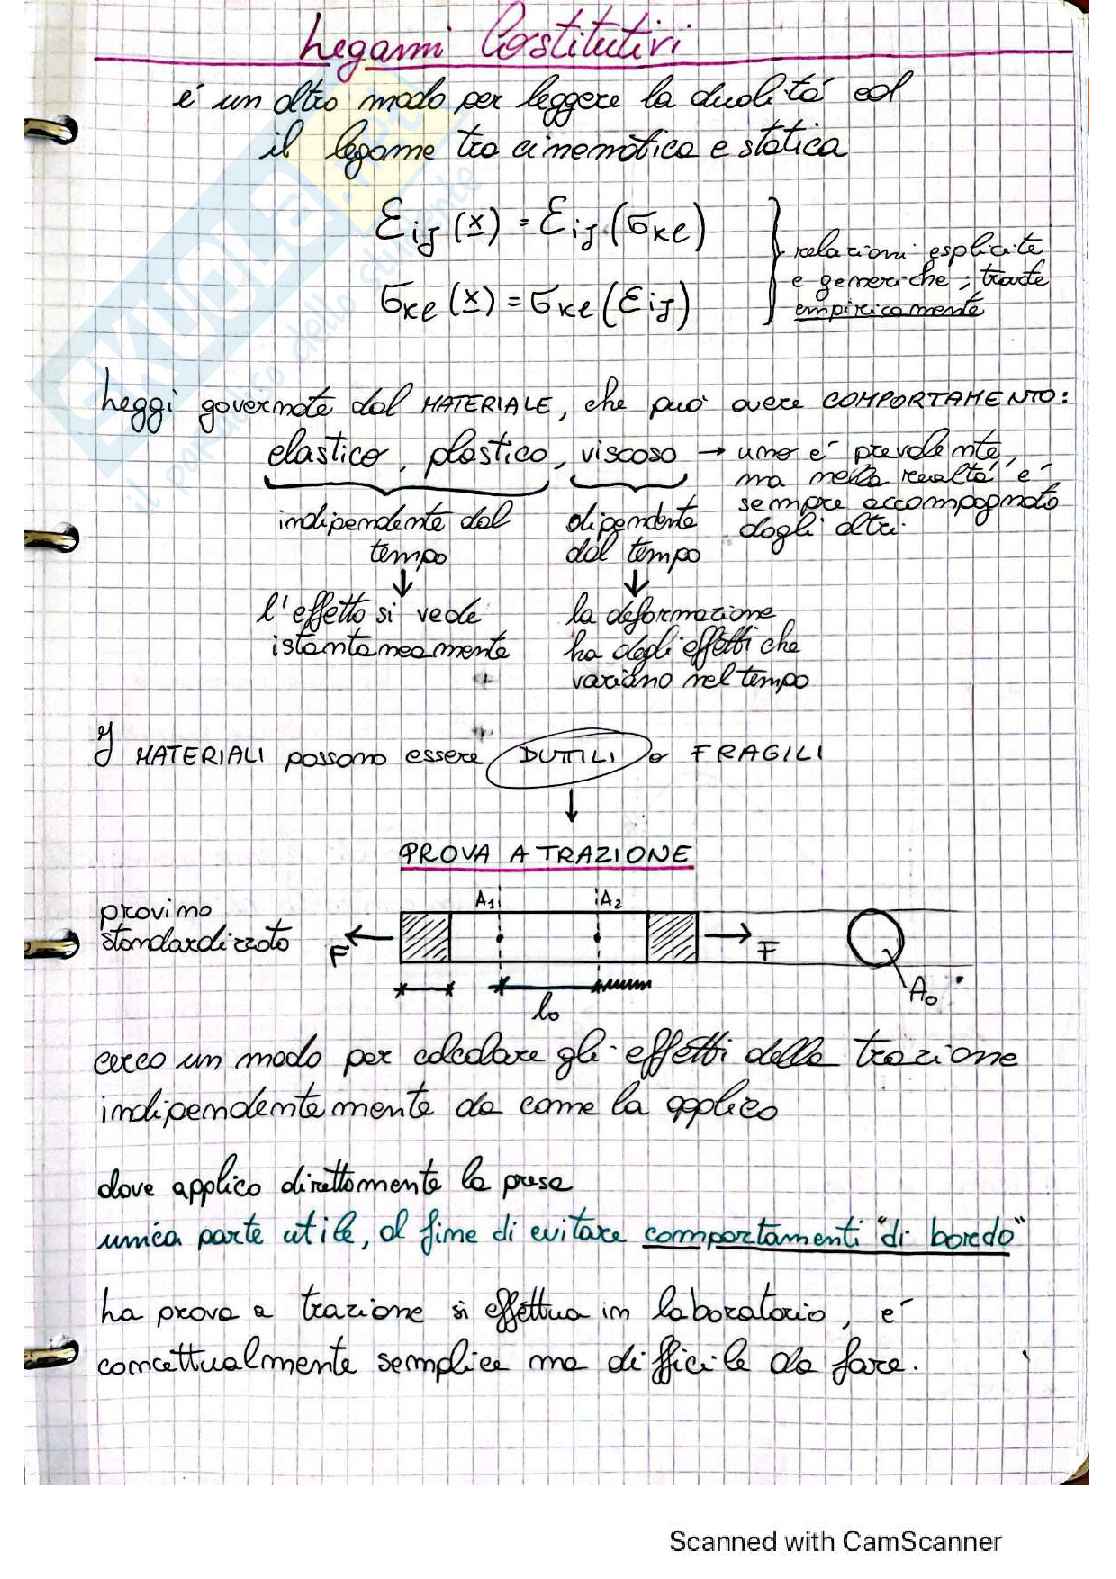 Legami Costitutivi
é un altro modo per leggere la dualitá ed
il legame tra cinematica e statica
Ɛij (x) = Ɛij (σke)
σke (x) = σke (Ɛij)
relazioni esplicite
e generiche, tratte
empiricamente
Leggi governate dal MATERIALE, che può avere COMPORTAMENTO:
elastico, plastico, viscoso → uno é prevalente,
ma nella realtá é
sempre accompagnato
dagli altri.
indipendente dal
tempo
dipendente
dal tempo
l'effetto si vede
istantaneamente
la deformazione
ha degli effetti che
variano nel tempo
I MATERIALI possono essere DUTTILI o FRAGILI
PROVA A TRAZIONE
provino
standardizzato
F
A1
A2
F
l0
A0
cerco un modo per calcolare gli effetti della trazione
indipendentemente da come la applico
dove applico direttamente la presa
unica parte utile, al fine di evitare comportamenti "di bordo"
La prova a trazione si effettua in laboratorio, é
concettualmente semplice ma difficile da fare.
SKUOLA.net
il paradiso dello studente
Scanned with CamScanner